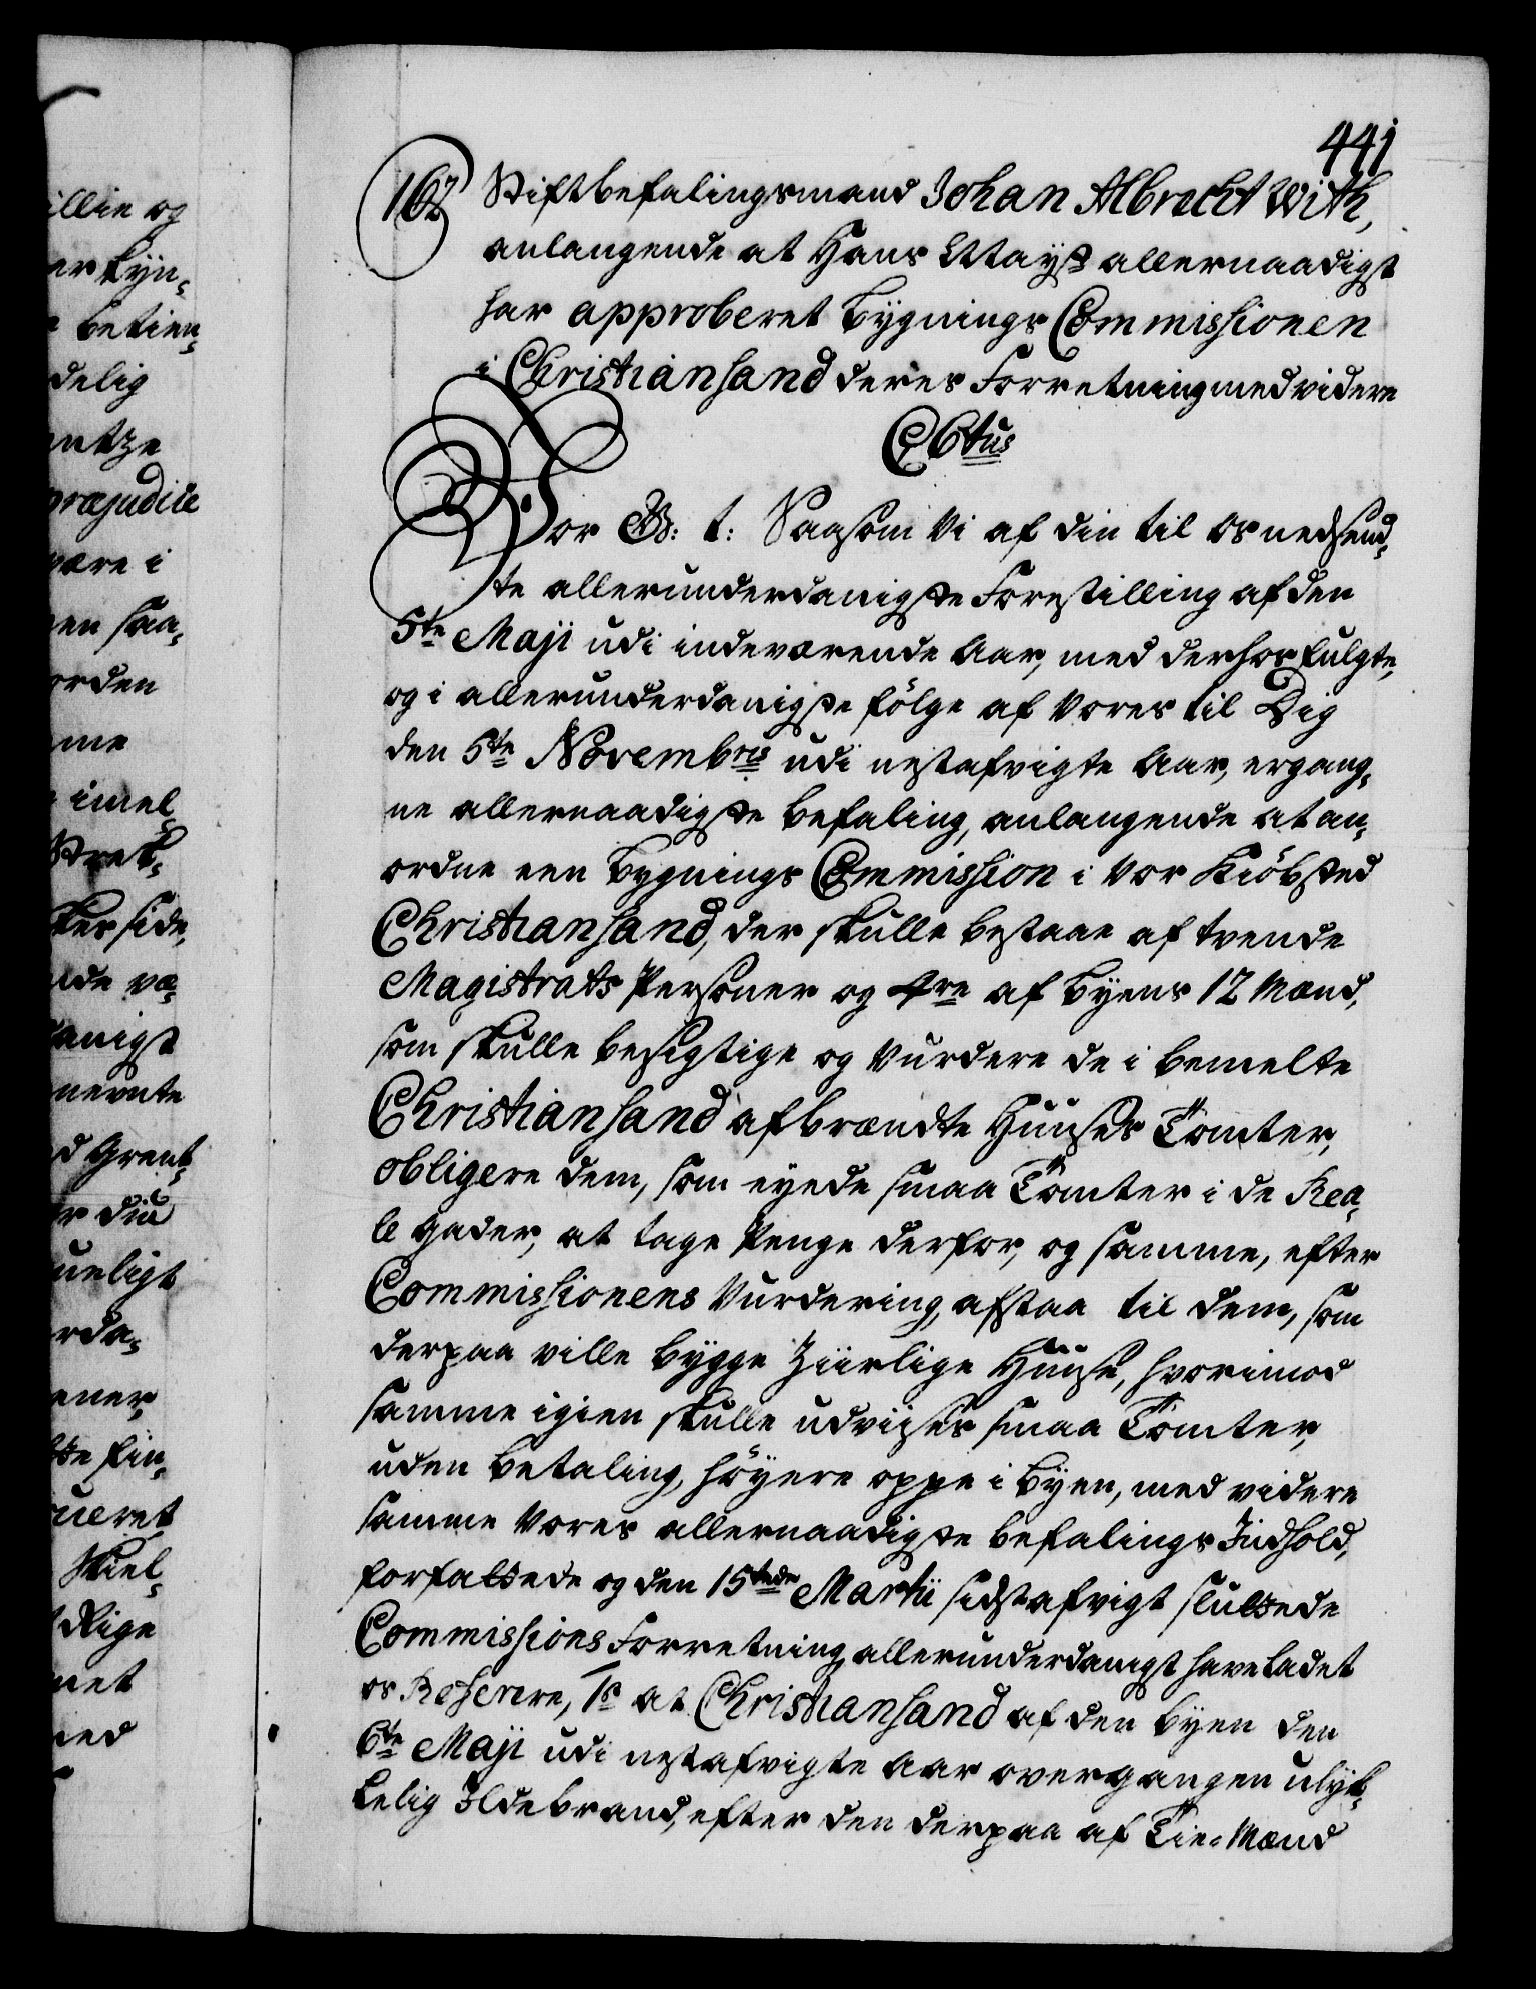 441
162 Stiftbefalingsmand Johan Albrecht With,
anlangende at Hans Mayst allernaadigst
har approberet bygnings Commissionen
i Christiansand deres Forretning med videre
C 6tus
Vor G: t: Saasom Vi af din til os nedsend,
te allerunderdanigste Forestilling af den
5te Maji udi indeværende Aar, med derhos fulgte,
og i allerunderdanigste følge af Vores til Dig
den 5te Novembris udi nestafvigte Aar, ergang,
ne allernaadigste befaling, anlangende at an,
ordne een bygnings Commission i Vor Kiöbsted
Christiansand, der skulle bestaae af tvende
Magistrats Personer og 4re af byens 12 Mænd,
som skulle besigtige og vurdere de i bemelte
Christiansand afbrændte Huuses Tomter,
obligere dem, som eyede smaa Tomter i de Rea,
le gader, at tage Penge derfor, og samme, efter
Commissionens Vurdering, afstaa til dem, som
derpaa ville bygge Ziirlige Huuse, hvorimod
samme igien skulle udviises smaa Tomter,
uden betaling, höyere oppe i byen, med videre
samme Vores allernaadigste befalings Indhold,
forfattede og den 15tende Martii sidstafvigt sluttede
Commissions Forretning allerunderdanigst have ladet
os Referere, 1o at Christiansand af den byen den
6te Maji udi nestafvigte Aar overgangen ulyk,
kelig Ildebrand, efter den derpaa af Tie Mænd
illie og
er kyn,
betien,
delig
præjudice
være i
en saa,
orden
imel,
Strek,
ker side,
anigst
nevnte
er din
ueligt
rda,
ener,
fin,
ueret
Skiel,
Rige
net
ned